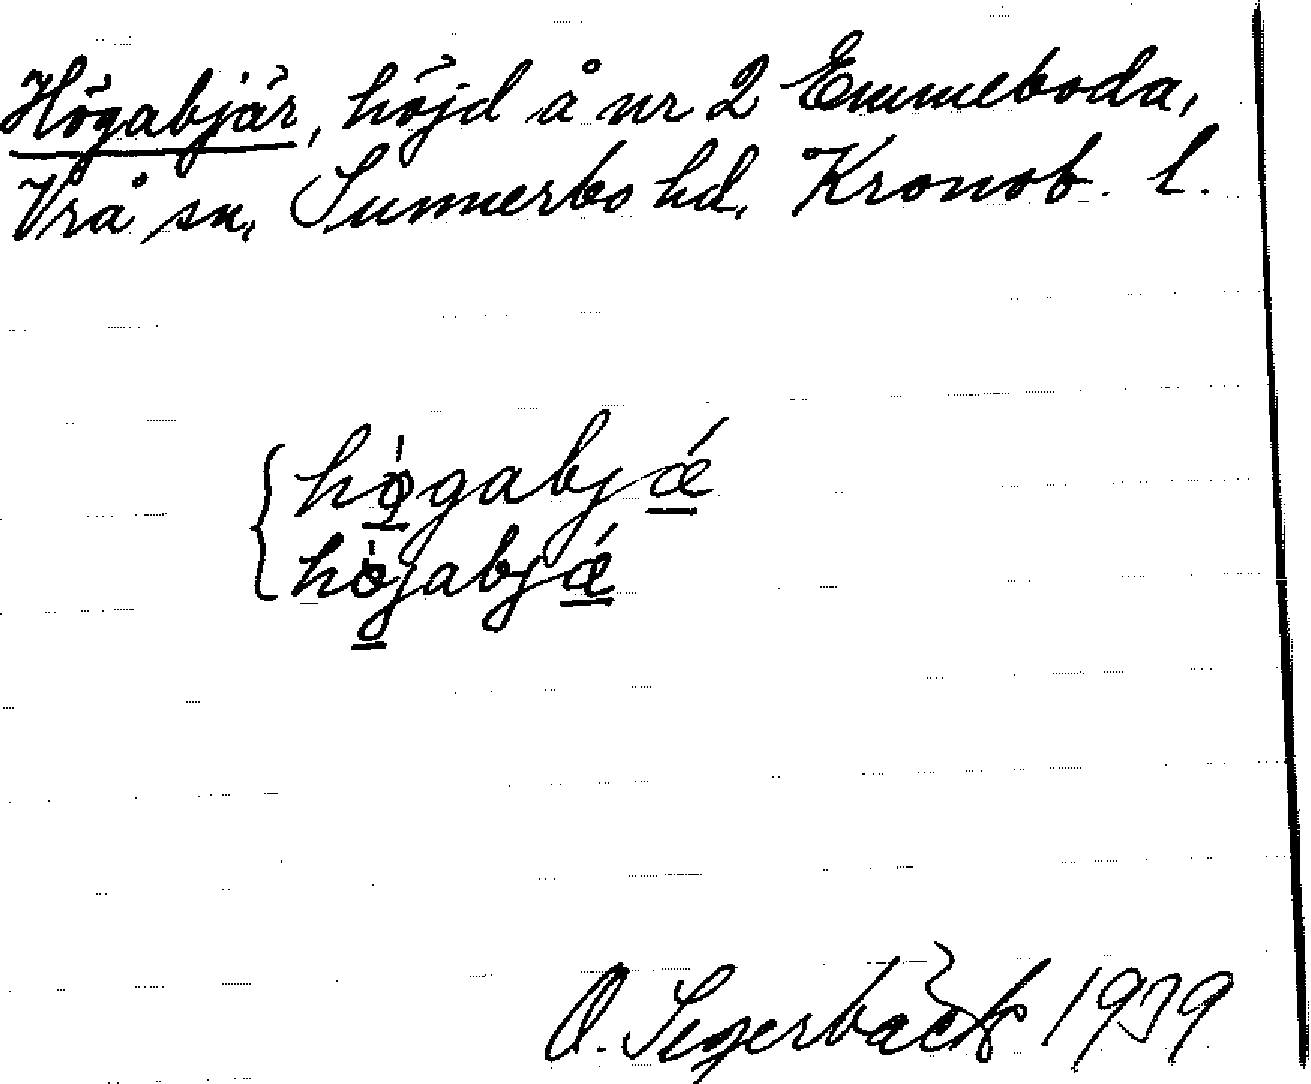 Högabjär, höjd å nr 2 Emmeboda,
Vrå sn, Sunnerbo hd, Kronob. l.
högabjǽ
höjabjǽ
O. Segerbäck 1939